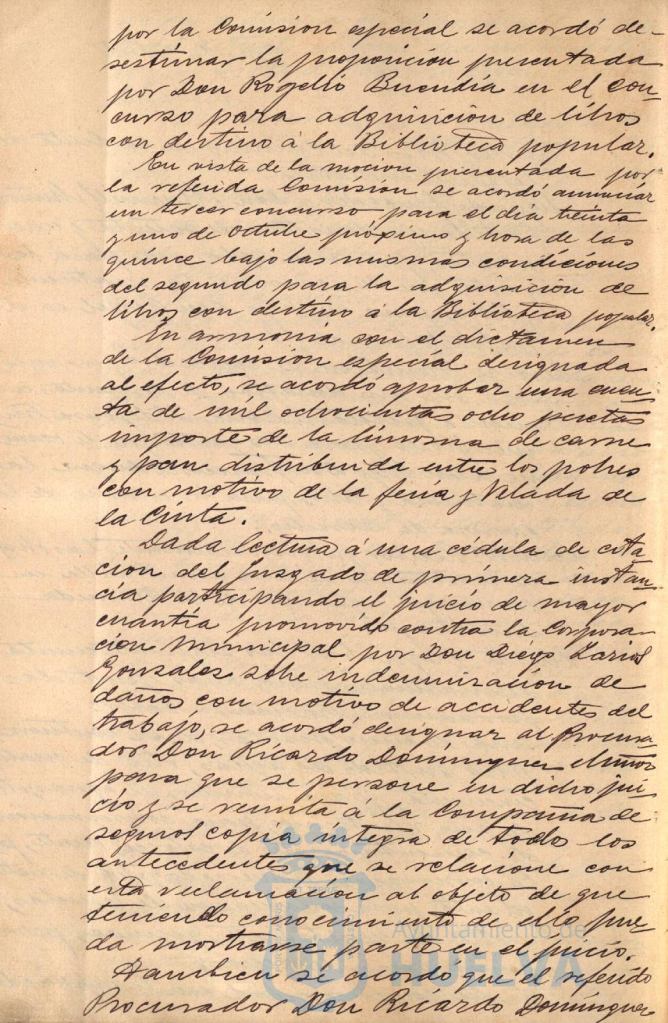 por la Comision especial se acordó de-
sestimar la proposicion presentada
por Don Rogelio Buendía en el con-
curso para adquisicion de libros
con destino á la Biblioteca popular.
En vista de la mocion presentada por
la referida Comision se acordó anunciar
un tercer concurso para el dia treinta
y uno de Octubre próximo y hora de las
quince bajo las mismas condiciones
del segundo para la adquisicion de
libros con destino á la Biblioteca popular.
En armonia con el dictamen
de la Comision especial designada
al efecto, se acordó aprobar una cuen-
ta de mil ochocientas ocho pesetas
importe de la limosna de carne
y pan distribuida entre los pobres
con motivo de la feria y Velada de
la Cinta.
Dada lectura á una cédula de cita
cion del Juzgado de primera instan-
cia participando el juicio de mayor
cuantía promovido contra la Corpora-
cion Municipal por Don Diego
Gonzalez sobre indemnizacion de
daños con motivo de accidentes del
trabajo, se acordó designar al Procura-
dor Don Ricardo Dominguez
para que se persone en dicho jui
cio y se remita á la Compañia de
seguros copia integra de todo los
antecedentes que se relacione con
esta reclamacion al objeto de que
teniendo conocimiento de ello pue-
da mostrarse parte en el juicio.
Tambien se acordo que el referido
Procurador Don Ricardo Dominguez
Ayuntamiento de
HUELVA